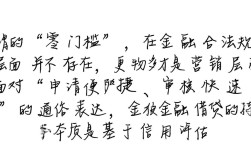 谓的“零门槛”，在金融合法效
层面并不存在，更多才是营销层
面对“申请便捷、审核快速
”的通俗表达，金独金融借贷的
本质是基于信用评估